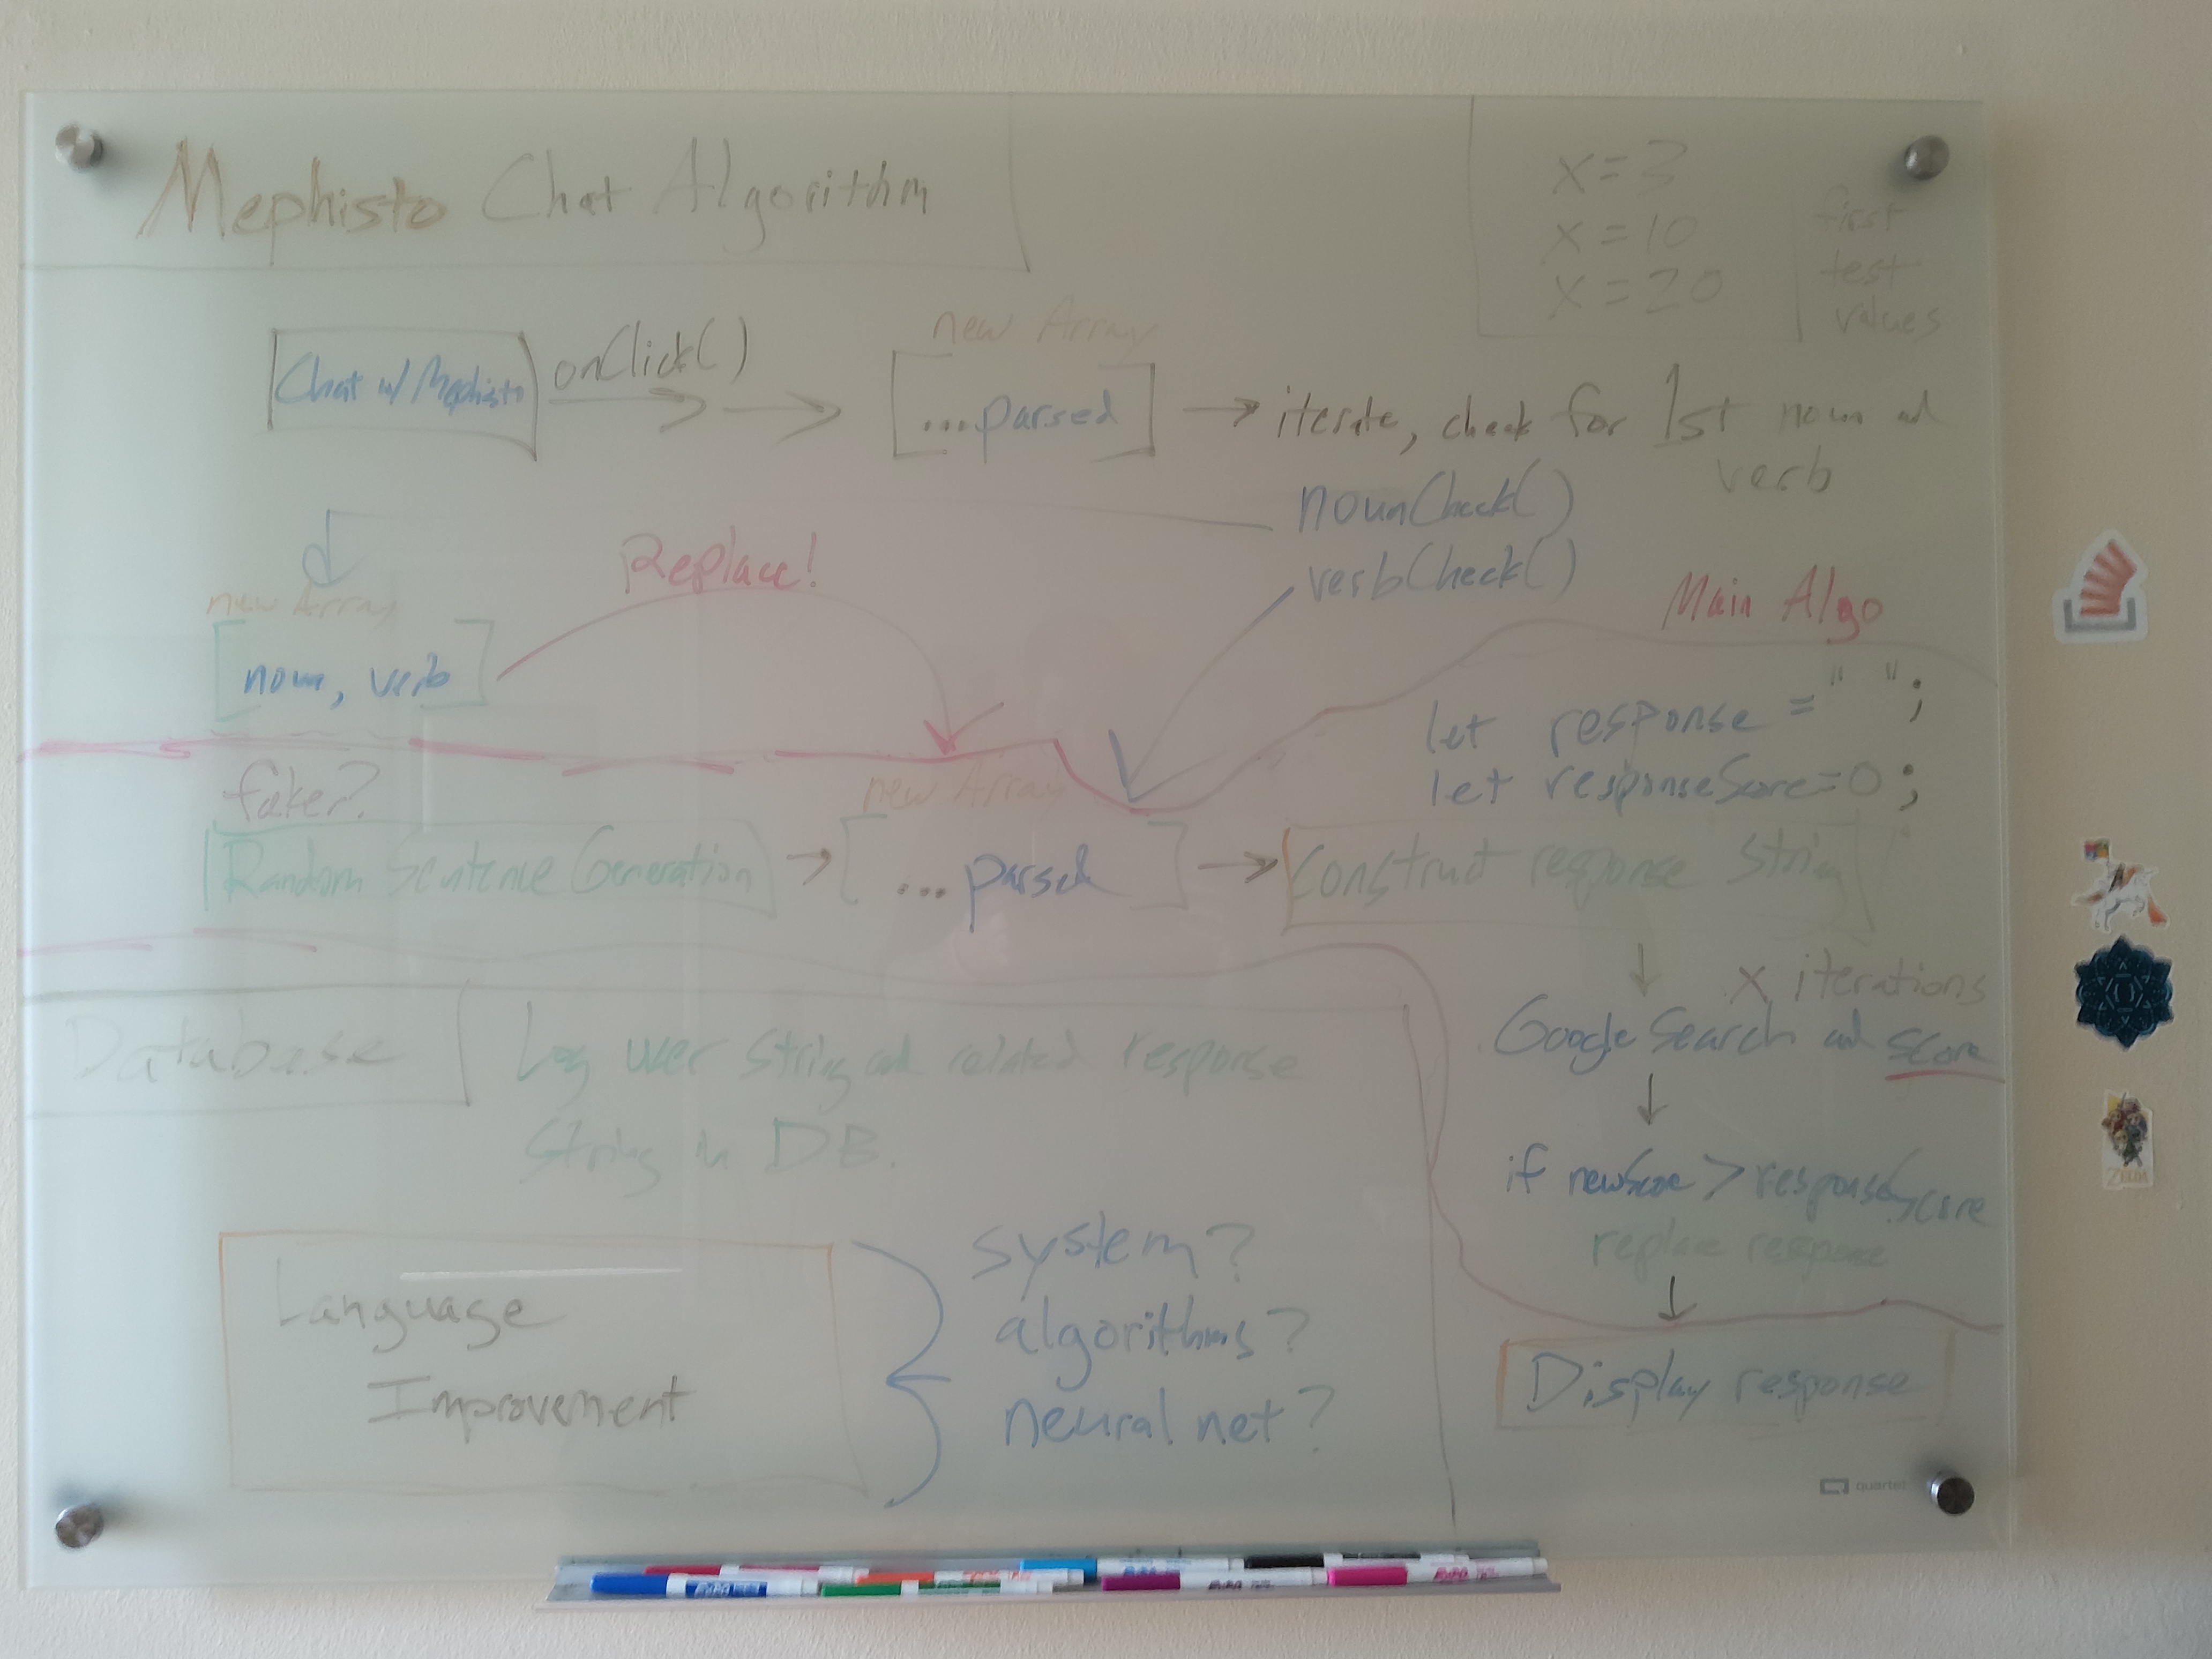 Mephisto Chat Algorithm
x=3
x=10
x=20
first
test
values
Chat w/ Mephisto
onClick()
new Array
...parsed
iterate, check for 1st noun and
verb
nounCheck()
verbCheck()
Replace!
new Array
noun, verb
Main Algo
let response = " ";
let responseScore=0;
faker?
new Array
Random Sentence Generation
... parsed
Construct response string
x iterations
Google Search and score
if newScore > responseScore
replace response
Display response
Database
Log user string and related response
string in DB.
Language
Improvement
system?
algorithms?
neural net?
quartet
ZELDA